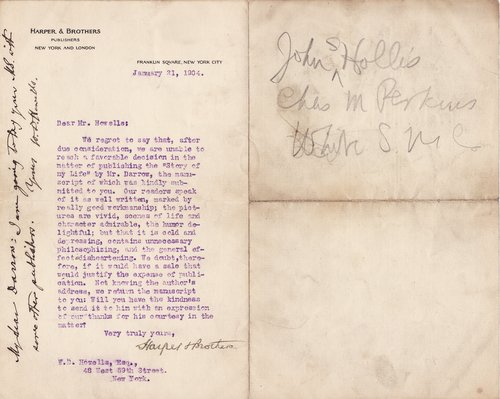 HARPER & BROTHERS
PUBLISHERS
NEW YORK AND LONDON
FRANKLIN SQUARE, NEW YORK CITY
January 21, 1904.
Dear Mr. Howells:
We regret to say that, after
due consideration, we are unable to
reach a favorable decision in the
matter of publishing the "Story of
my Life" by Mr. Darrow, the manu-
script of which was kindly sub-
mitted to you. Our readers speak
of it as well written, marked by
really good workmanship; the pict-
ures are vivid, scenes of life and
character admirable, the humor de-
lightful; but that it is cold and
depressing, contains unnecessary
philosophizing, and the general ef-
fect disheartening. We doubt, there-
fore, if it would have a sale that
would justify the expense of publi-
cation. Not knowing the author's
address, we return the manuscript
to you. Will you have the kindness
to send it to him with an expression
of our thanks for his courtesy in the
matter?
Very truly yours,
Harper & Brothers
W.D. Howells, Esq.,
48 West 59th Street.
New York.
My dear Darrow: I am going to try your MS. with
some other publisher. Yours W. D. Howells.
John S Hollis
Chas M Perkins
White S.